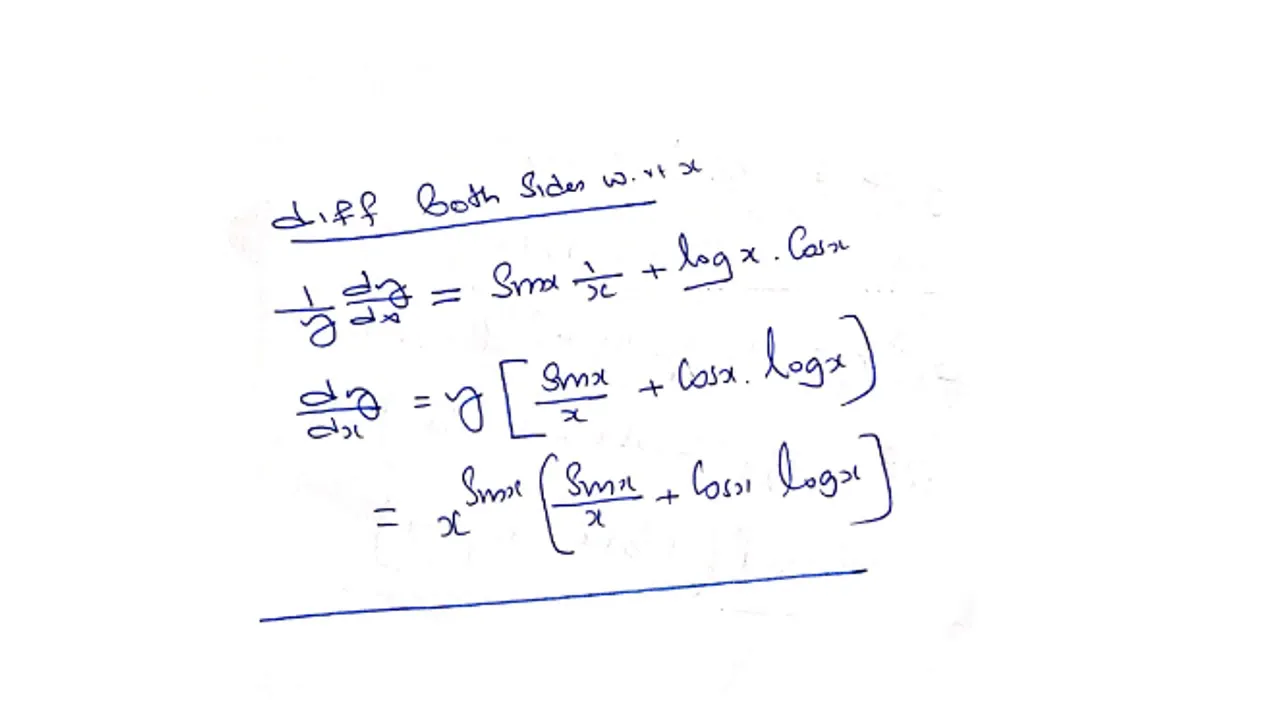 diff both sides w.rt x
1/y dy/dx = Sinx 1/x + log x . Cosx
dy/dx = y [ Sinx/x + Cosx . logx ]
= x^Sinx ( Sinx/x + Cosx logx ]